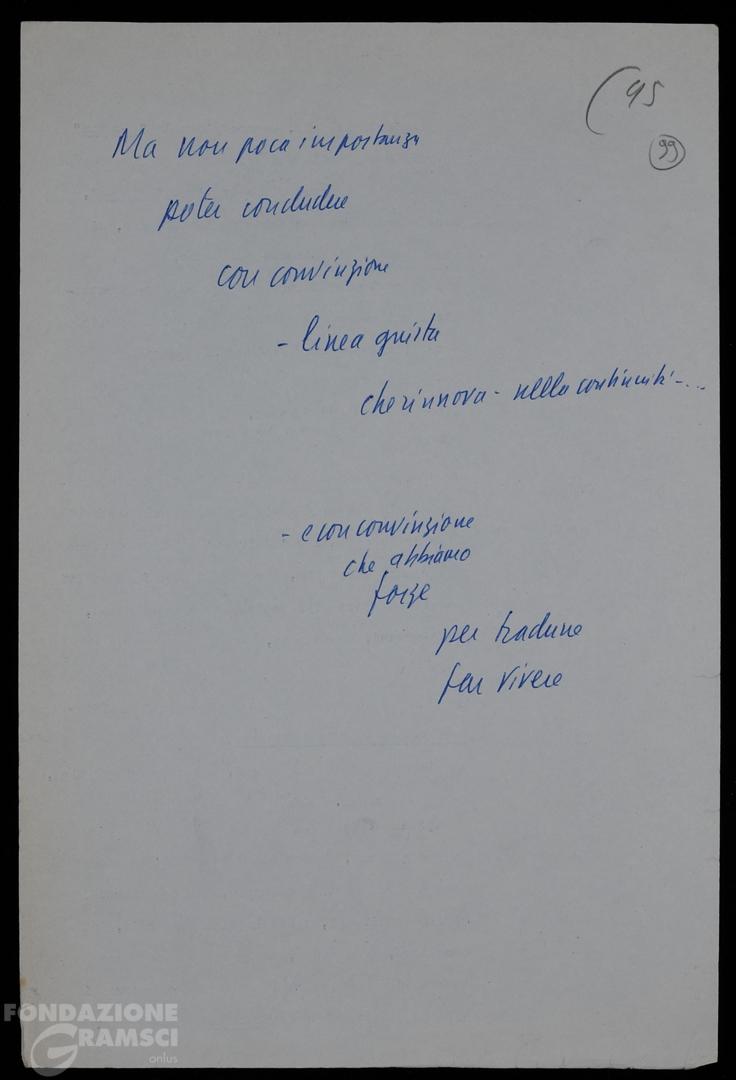 (95
99
Ma non poca importanza
poter concludere
con convinzione
- linea giusta
che rinnova - nella continuità - ...
- e con convinzione
che abbiamo
forze
per tradurre
far vivere
FONDAZIONE
GRAMSCI
onlus